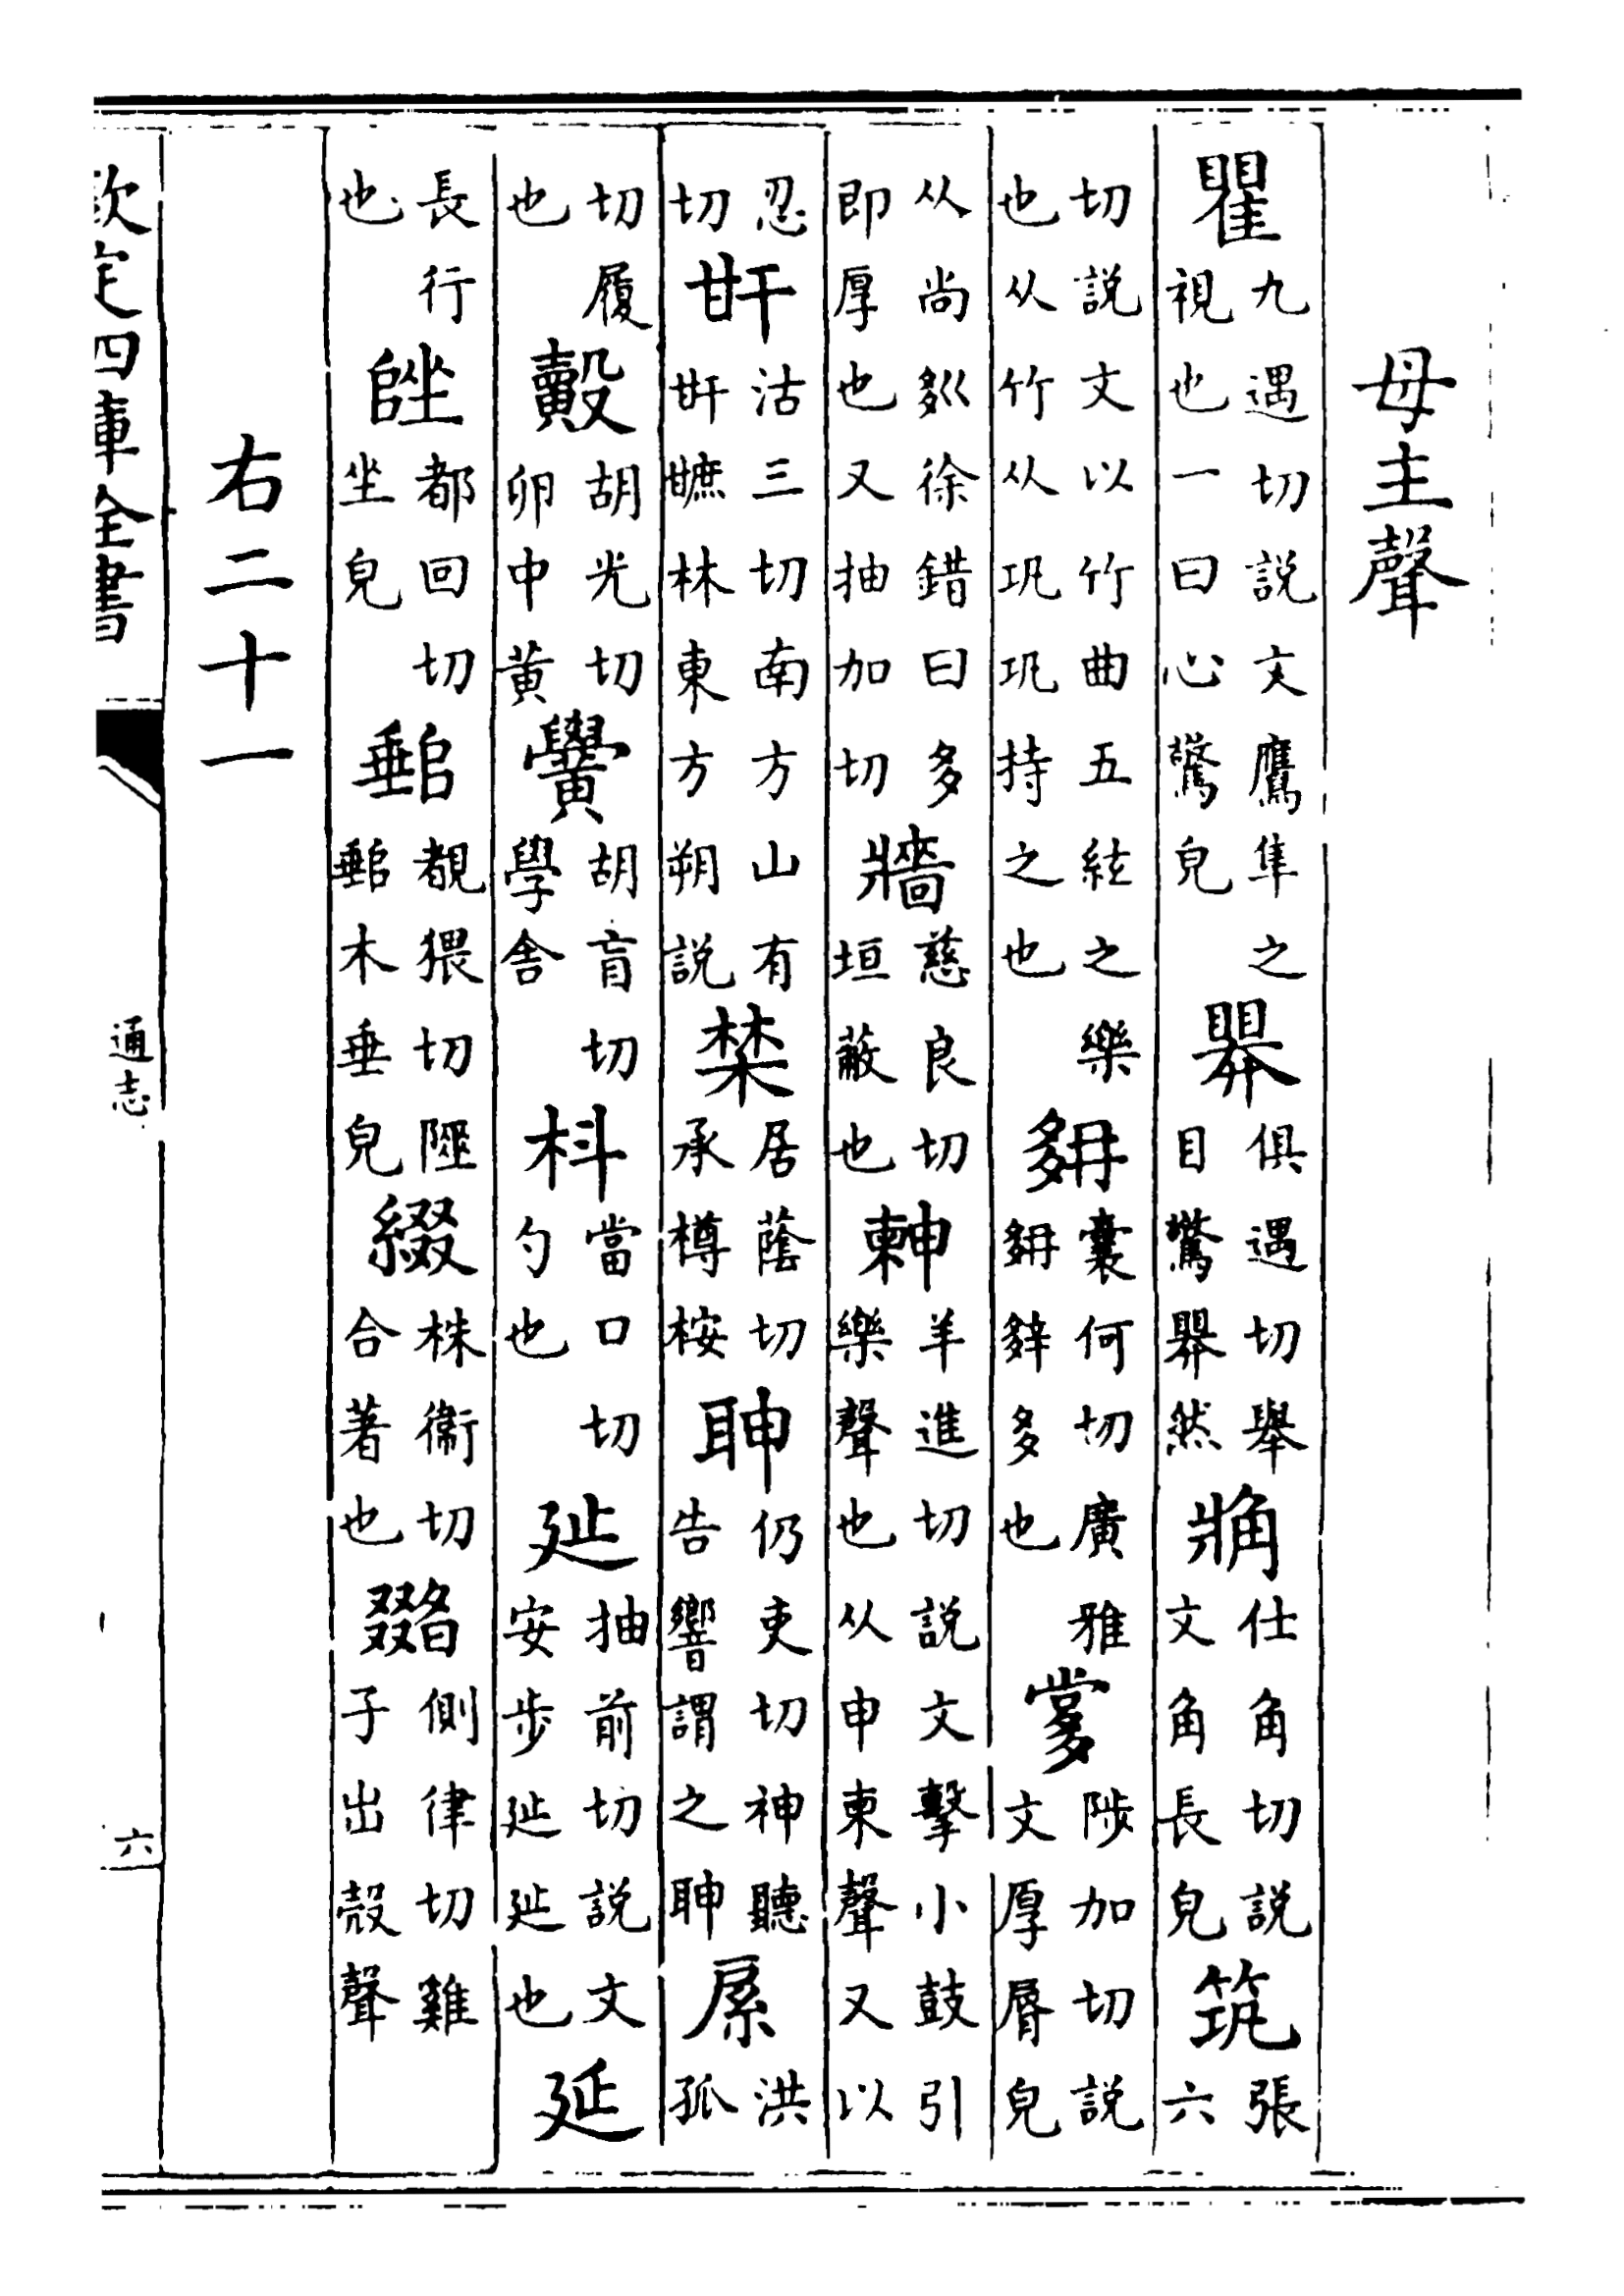 母主聲
瞿九遇切説文鷹隼之視也一曰心驚皃 俱遇切舉目驚然 仕角切説文角長皃筑張六
切説文以竹曲五絃之樂也从竹从巩巩持之也 囊何切廣雅多也 陟加切説文厚脣皃
从尚徐錯曰多即厚也又抽加切牆慈良切垣蔽也 羊進切説文擊小鼓引樂聲也从申柬聲又以
忍切 沽三切南方山有林東方朔説 居蔭切承樽桉 仍吏切神聽告響謂之 洪孤
切履也 胡光切卵中黄黌胡盲切學舍枓當口切勺也㢟抽前切説文安步㢟㢟也延
長行也 都回切坐皃 覩猥切木垂皃綴株衞切合著也 側律切雞子出殻聲
右二十一
欽定四庫全書
通志
六